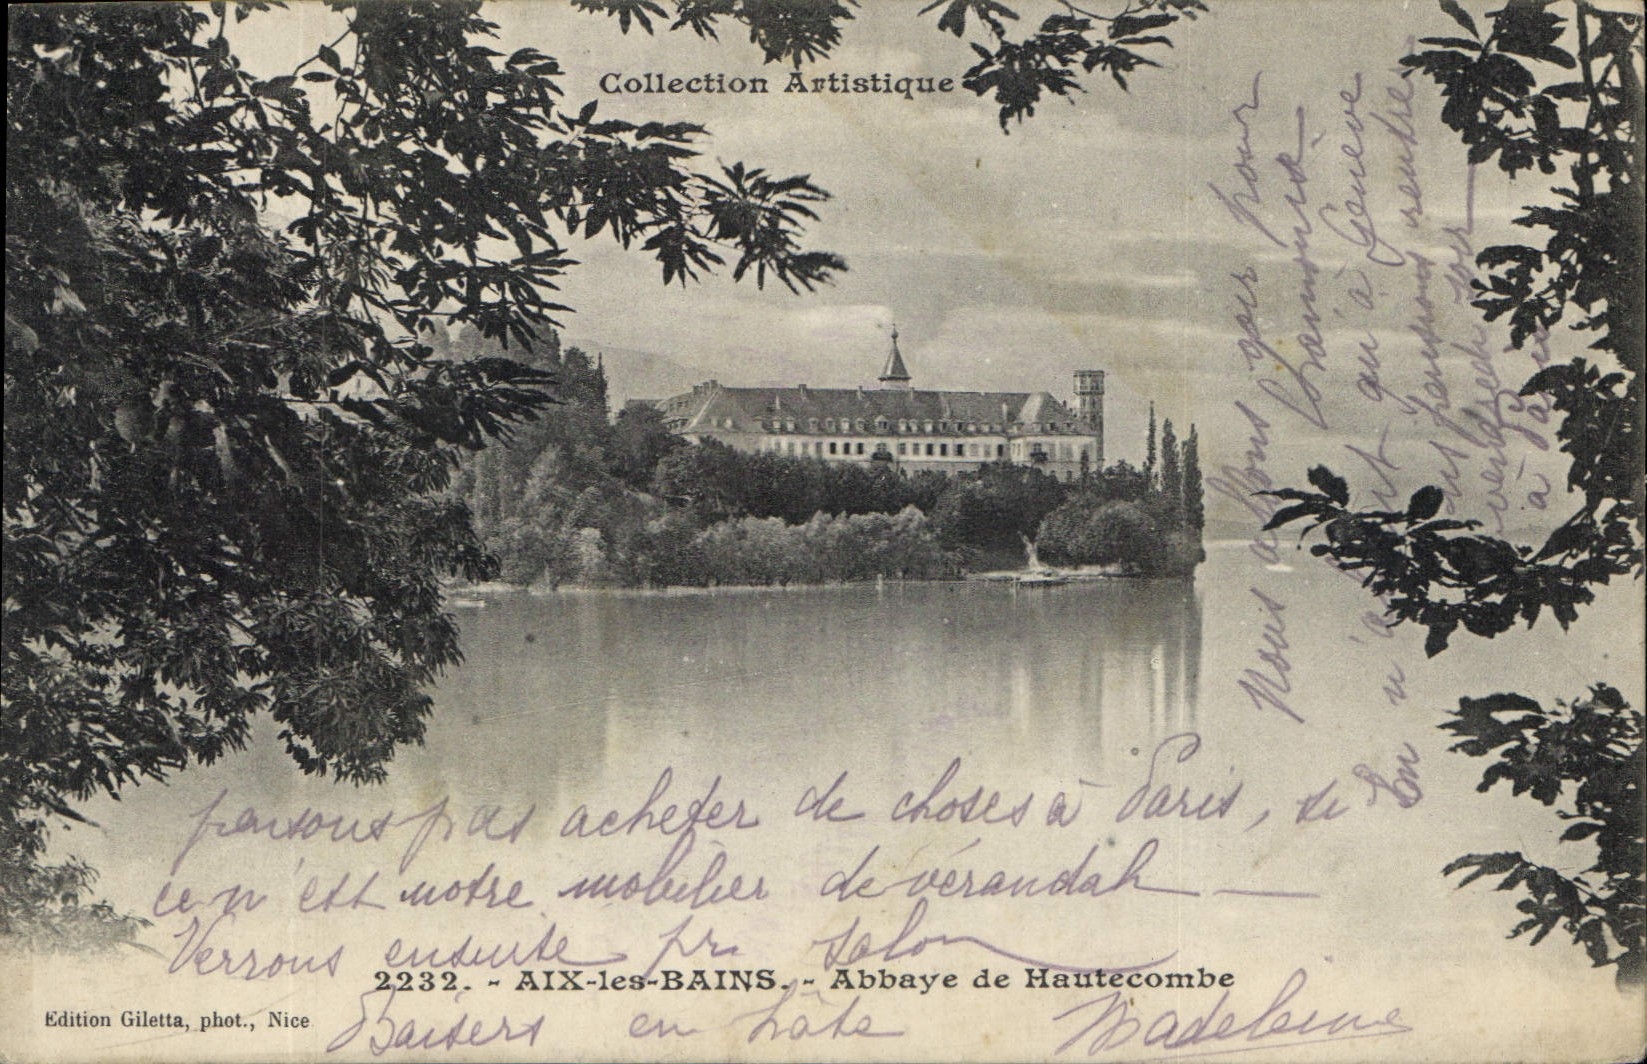 Collection Artistique
Nous allons que pour
Chamounix
n'a qu'à Genève
pensons rentrer
vendredi soir
à Paris
En
faisons pas acheter de choses à Paris, si
ce n'est notre mobilier de vérandah —
Verrons ensuite pr salon
2232. - AIX-les-BAINS. - Abbaye de Hautecombe
Edition Giletta, phot., Nice
Baisers en hâte Madeleine